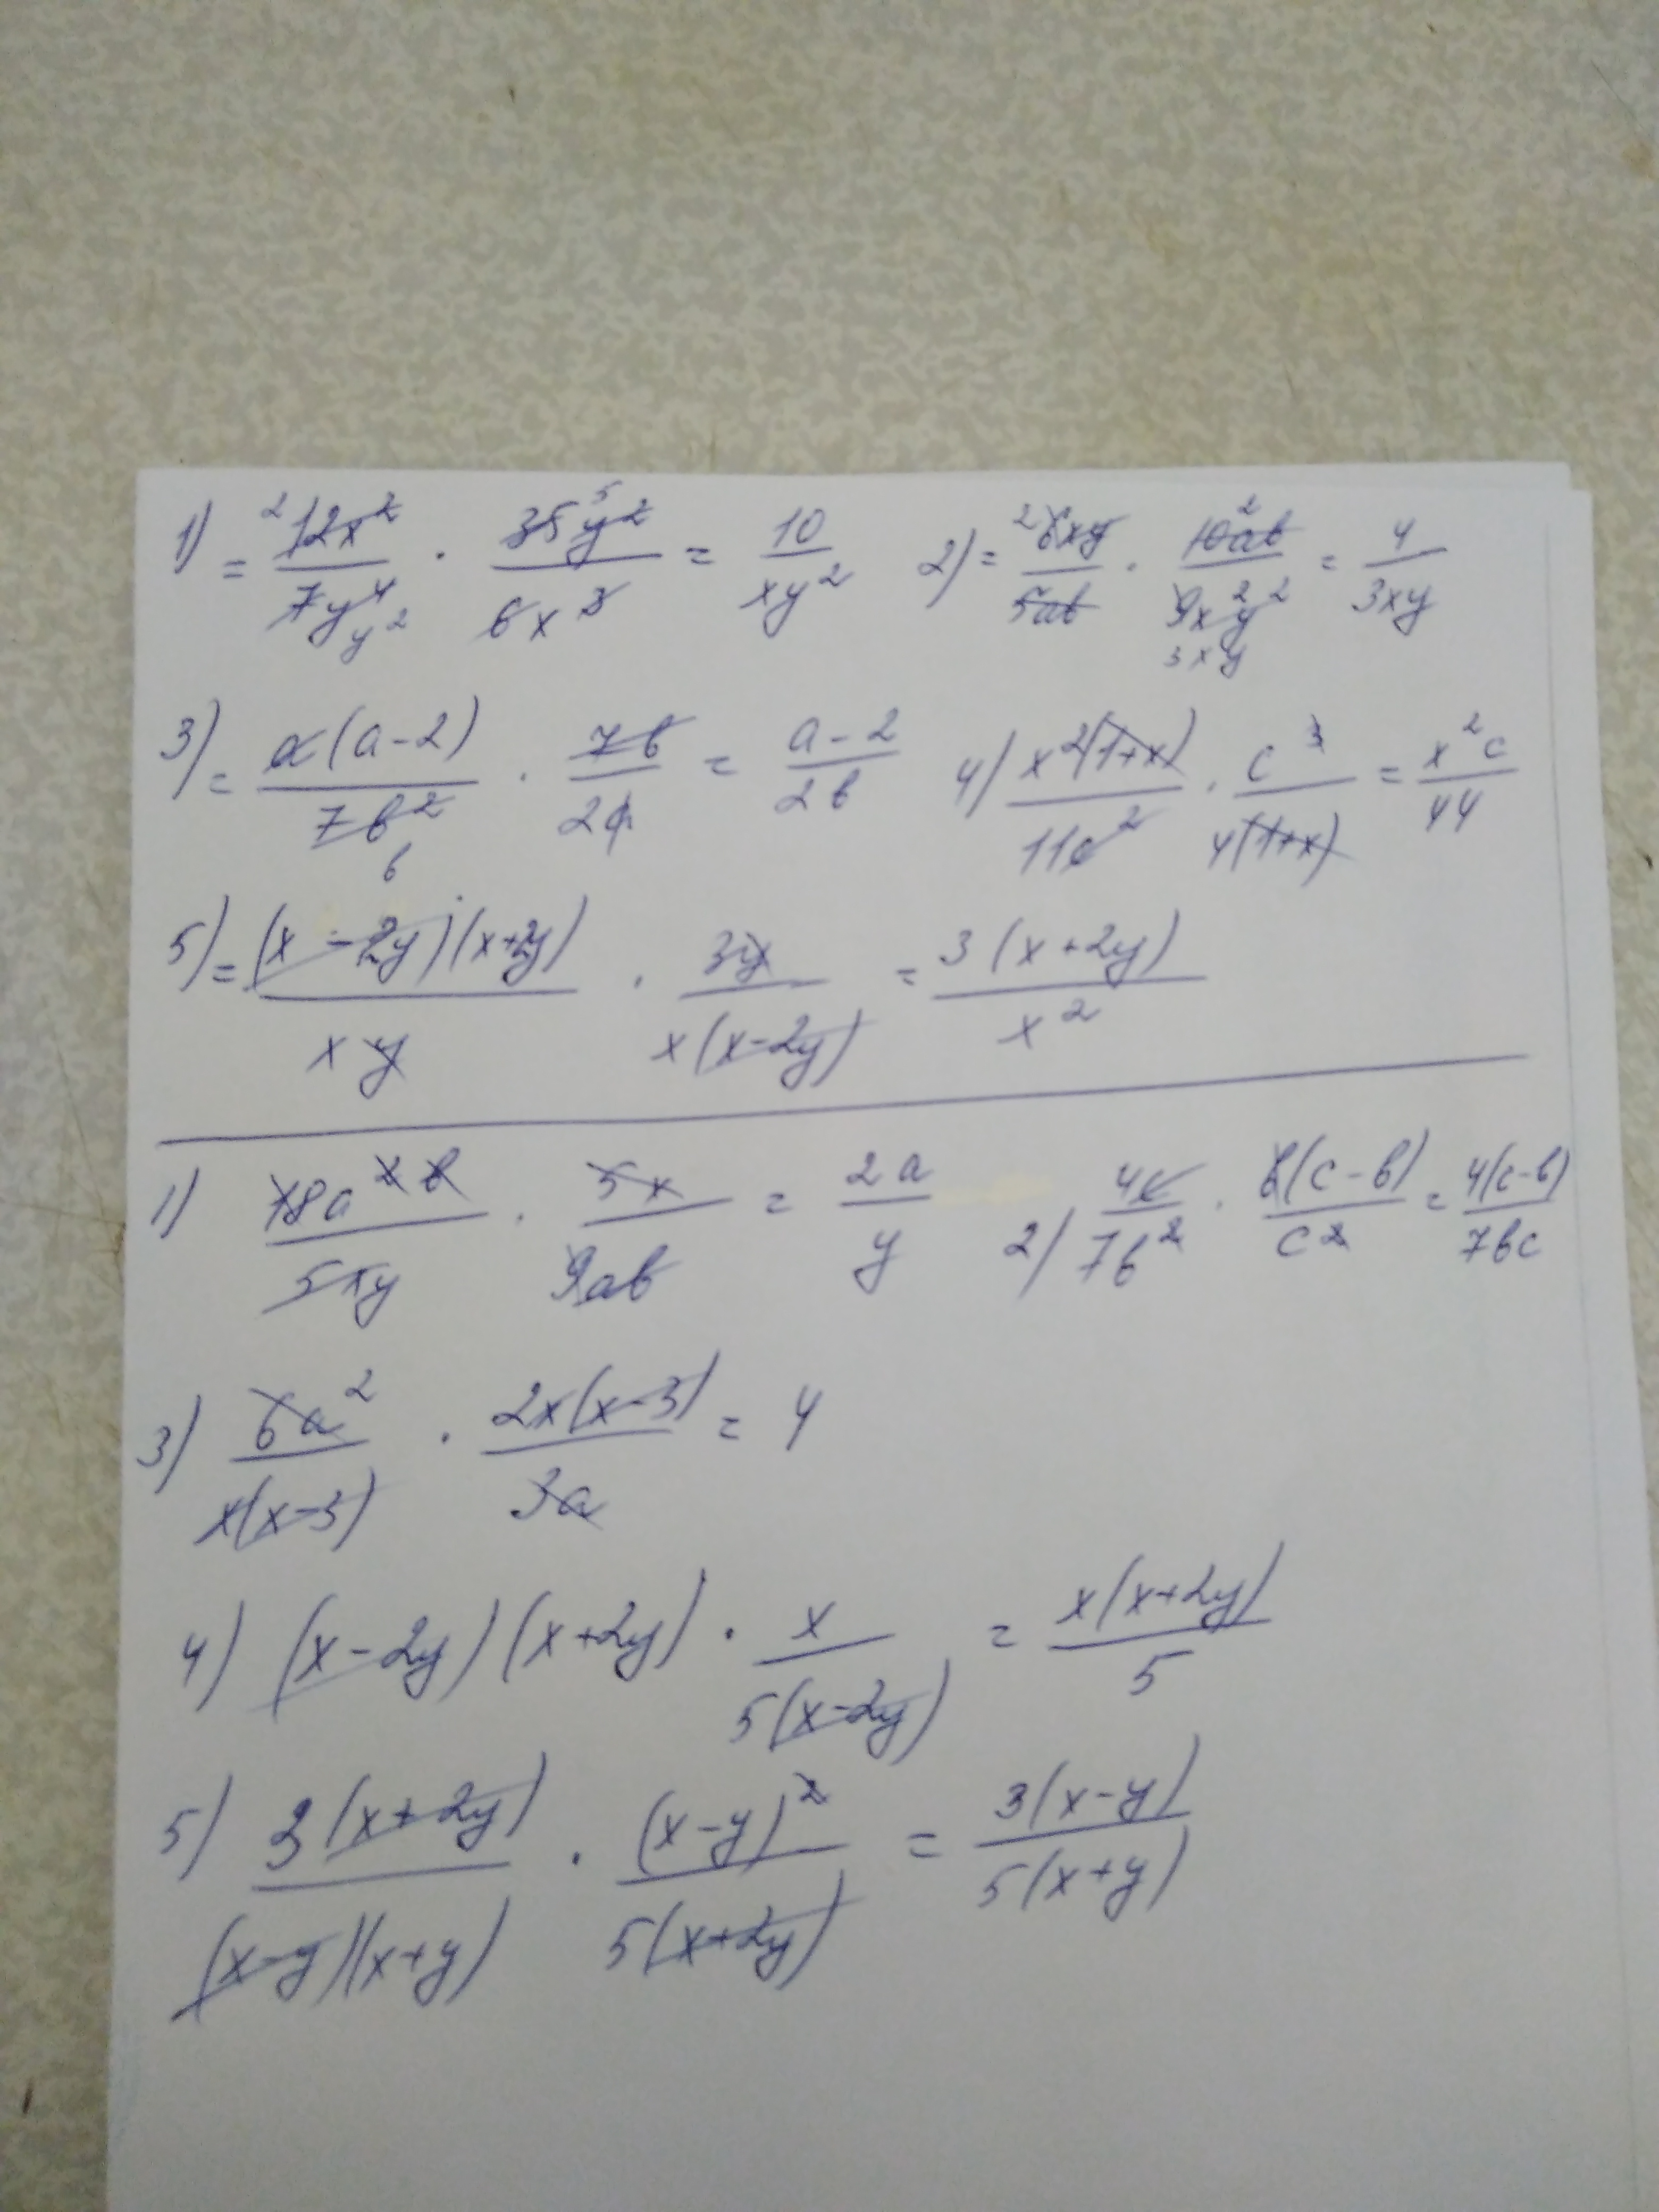 1) = ²12x²/7y⁴ y² · 35⁵y²/6x³ = 10/xy² 2) = ²6xy/5ab · 10²ab/9x²y² 3xy = 4/3xy
3) = a(a-2)/7b² b · 7b/2a = a-2/2b 4) x²(1+x)/11c² · c³/4(1+x) = x²c/44
5) = (x-2y)(x+2y)/xy · 3y/x(x-2y) = 3(x+2y)/x²
1) 18a²b/5xy · 5x/9ab = 2a/y 2) 4c/7b² · b(c-b)/c² = 4(c-b)/7bc
3) 6a²/x(x-3) · 2x(x-3)/3a = 4
4) (x-2y)(x+2y) · x/5(x-2y) = x(x+2y)/5
5) 3(x+2y)/(x-y)(x+y) · (x-y)²/5(x+2y) = 3(x-y)/5(x+y)